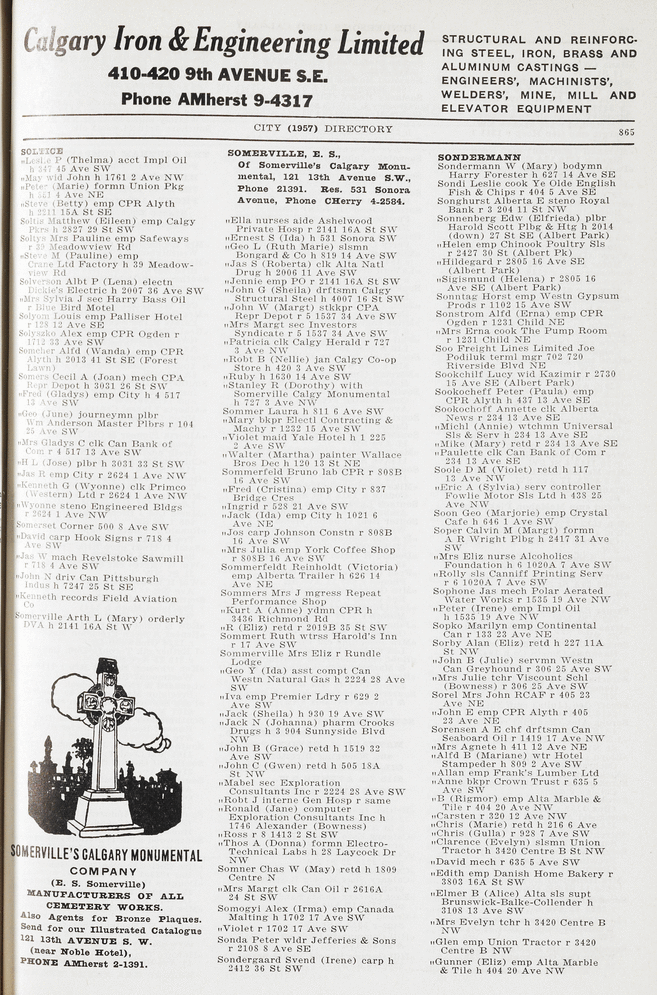 Calgary Iron & Engineering Limited
410-420 9th AVENUE S.E.
Phone AMherst 9-4317
STRUCTURAL AND REINFORC-
ING STEEL, IRON, BRASS AND
ALUMINUM CASTINGS —
ENGINEERS', MACHINISTS',
WELDERS', MINE, MILL AND
ELEVATOR EQUIPMENT
CITY (1957) DIRECTORY
865
SOLTICE
"Leslie P (Thelma) acct Impl Oil
h 347 45 Ave SW
"May wid John h 1761 2 Ave NW
"Peter (Marie) formn Union Pkg
h 521 4 Ave NE
"Steve (Betty) emp CPR Alyth
h 2211 15A St SE
Soltis Matthew (Eileen) emp Calgy
Pkrs h 2827 29 St SW
Soltys Mrs Pauline emp Safeways
r 39 Meadowview Rd
"Steve M (Pauline) emp
Crane Ltd Factory h 39 Meadow-
view Rd
Solverson Albt P (Lena) electn
Dickie's Electric h 2007 36 Ave SW
"Mrs Sylvia J sec Harry Bass Oil
r Blue Bird Motel
Solyom Louis emp Palliser Hotel
r 128 12 Ave SE
Solyszko Alex emp CPR Ogden r
1712 33 Ave SW
Somcher Alfd (Wanda) emp CPR
Alyth h 2013 41 St SE (Forest
Lawn)
Somers Cecil A (Joan) mech CPA
Repr Depot h 3031 26 St SW
"Fred (Gladys) emp City h 4 517
13 Ave SW
"Geo (June) journeymn plbr
Wm Anderson Master Plbrs r 104
25 Ave SW
"Mrs Gladys C clk Can Bank of
Com r 4 517 13 Ave SW
"H L (Jose) plbr h 3031 33 St SW
"Jas R emp City r 2624 1 Ave NW
"Kenneth G (Wyonne) clk Primco
(Western) Ltd r 2624 1 Ave NW
"Wyonne steno Engineered Bldgs
r 2624 1 Ave NW
Somerset Corner 500 8 Ave SW
"David carp Hook Signs r 718 4
Ave SW
"Jas W mach Revelstoke Sawmill
r 718 4 Ave SW
"John N driv Can Pittsburgh
Indus h 7247 25 St SE
"Kenneth records Field Aviation
Co
Somerville Arth L (Mary) orderly
DVA h 2141 16A St W
SOMERVILLE'S CALGARY MONUMENTAL
COMPANY
(E. S. Somerville)
MANUFACTURERS OF ALL
CEMETERY WORKS.
Also Agents for Bronze Plaques.
Send for our Illustrated Catalogue
121 13th AVENUE S. W.
(near Noble Hotel),
PHONE AMherst 2-1391.
SOMERVILLE, E. S.,
Of Somerville's Calgary Monu-
mental, 121 13th Avenue S.W.,
Phone 21391. Res. 531 Sonora
Avenue, Phone CHerry 4-2584.
"Ella nurses aide Ashelwood
Private Hosp r 2141 16A St SW
"Ernest S (Ida) h 531 Sonora SW
"Geo L (Ruth Marie) slsmn
Bongard & Co h 819 14 Ave SW
"Jas S (Roberta) clk Alta Natl
Drug h 2006 11 Ave SW
"Jennie emp PO r 2141 16A St SW
"John G (Sheila) drftsmn Calgy
Structural Steel h 4007 16 St SW
"John W (Margt) stkkpr CPA
Repr Depot r 5 1537 34 Ave SW
"Mrs Margt sec Investors
Syndicate r 5 1537 34 Ave SW
"Patricia clk Calgy Herald r 727
3 Ave NW
"Robt B (Nellie) jan Calgy Co-op
Store h 420 3 Ave SW
"Ruby h 1630 14 Ave SW
"Stanley R (Dorothy) with
Somerville Calgy Monumental
h 727 3 Ave NW
Sommer Laura h 811 6 Ave SW
"Mary bkpr Electl Contracting &
Machy r 1232 15 Ave SW
"Violet maid Yale Hotel h 1 225
2 Ave SW
"Walter (Martha) painter Wallace
Bros Dec h 120 13 St NE
Sommerfeld Bruno lab CPR r 808B
16 Ave SW
"Fred (Cristina) emp City r 837
Bridge Cres
"Ingrid r 528 21 Ave SW
"Jack (Ida) emp City h 1021 6
Ave NE
"Jos carp Johnson Constn r 808B
16 Ave SW
"Mrs Julia emp York Coffee Shop
r 808B 16 Ave SW
Sommerfeldt Reinholdt (Victoria)
emp Alberta Trailer h 626 14
Ave NE
Sommers Mrs J mgress Repeat
Performance Shop
"Kurt A (Anne) ydmn CPR h
3436 Richmond Rd
"R (Eliz) retd r 2019B 35 St SW
Sommert Ruth wtrss Harold's Inn
r 17 Ave SW
Sommerville Mrs Eliz r Rundle
Lodge
"Geo Y (Ida) asst compt Can
Westn Natural Gas h 2224 28 Ave
SW
"Iva emp Premier Ldry r 629 2
Ave SW
"Jack (Sheila) h 930 19 Ave SW
"Jack N (Johanna) pharm Crooks
Drugs h 3 904 Sunnyside Blvd
NW
"John B (Grace) retd h 1519 32
Ave SW
"John C (Gwen) retd h 505 18A
St NW
"Mabel sec Exploration
Consultants Inc r 2224 28 Ave SW
"Robt J interne Gen Hosp r same
"Ronald (Jane) computer
Exploration Consultants Inc h
1746 Alexander (Bowness)
"Ross r 8 1413 2 St SW
"Thos A (Donna) formn Electro-
Technical Labs h 28 Laycock Dr
NW
Somner Chas W (May) retd h 1809
Centre N
"Mrs Margt clk Can Oil r 2616A
24 St SW
Somogyi Alex (Irma) emp Canada
Malting h 1702 17 Ave SW
"Violet r 1702 17 Ave SW
Sonda Peter wldr Jefferies & Sons
r 2108 8 Ave SE
Sondergaard Svend (Irene) carp h
2412 36 St SW
SONDERMANN
Sondermann W (Mary) bodymn
Harry Forester h 627 14 Ave SE
Sondi Leslie cook Ye Olde English
Fish & Chips r 404 5 Ave SE
Songhurst Alberta E steno Royal
Bank r 3 204 11 St NW
Sonnenberg Edw (Elfrieda) plbr
Harold Scott Plbg & Htg h 2014
(down) 27 St SE (Albert Park)
"Helen emp Chinook Poultry Sls
r 2427 30 St (Albert Pk)
"Hildegard r 2805 16 Ave SE
(Albert Park)
"Sigismund (Helena) r 2805 16
Ave SE (Albert Park)
Sonntag Horst emp Westn Gypsum
Prods r 1102 15 Ave SW
Sonstrom Alfd (Erna) emp CPR
Ogden r 1231 Child NE
"Mrs Erna cook The Pump Room
r 1231 Child NE
Soo Freight Lines Limited Joe
Podiluk terml mgr 702 720
Riverside Blvd NE
Sookchilf Lucy wid Kazimir r 2730
15 Ave SE (Albert Park)
Sookocheff Peter (Paula) emp
CPR Alyth h 437 13 Ave SW
Sookochoff Annette clk Alberta
News r 234 13 Ave SE
"Michl (Annie) wtchmn Universal
Sls & Serv h 234 13 Ave SE
"Mike (Mary) retd r 234 13 Ave SE
"Paulette clk Can Bank of Com r
234 13 Ave SE
Soole D M (Violet) retd h 117
13 Ave NW
"Eric A (Sylvia) serv controller
Fowlie Motor Sls Ltd h 438 25
Ave NW
Soon Geo (Marjorie) emp Crystal
Cafe h 646 1 Ave SW
Soper Calvin M (Margt) formn
A R Wright Plbg h 2417 31 Ave
SW
"Mrs Eliz nurse Alcoholics
Foundation h 6 1020A 7 Ave SW
"Rolly sls Canniff Printing Serv
r 6 1020A 7 Ave SW
Sophone Jas mech Polar Aerated
Water Works r 1535 19 Ave NW
"Peter (Irene) emp Impl Oil
h 1535 19 Ave NW
Sopko Marilyn emp Continental
Can r 133 23 Ave NE
Sorby Alan (Eliz) retd h 227 11A
St NW
"John B (Julie) servmn Westn
Can Greyhound r 306 25 Ave SW
"Mrs Julie tchr Viscount Schl
(Bowness) r 306 25 Ave SW
Sorel Mrs John RCAF r 405 23
Ave NE
"John E emp CPR Alyth r 405
23 Ave NE
Sorensen A E chf drftsmn Can
Seaboard Oil r 1419 17 Ave NW
"Mrs Agnete h 411 12 Ave NE
"Alfd B (Mariane) wtr Hotel
Stampeder h 809 2 Ave SW
"Allan emp Frank's Lumber Ltd
"Anne bkpr Crown Trust r 635 5
Ave SW
"B (Rigmor) emp Alta Marble &
Tile r 404 20 Ave NW
"Carsten r 320 12 Ave NW
"Chris (Marie) retd h 216 6 Ave
"Chris (Gulla) r 928 7 Ave SW
"Clarence (Evelyn) slsmn Union
Tractor h 3420 Centre B St NW
"David mech r 635 5 Ave SW
"Edith emp Danish Home Bakery r
3803 16A St SW
"Elmer B (Alice) Alta sls supt
Brunswick-Balke-Collender h
3108 13 Ave SW
"Mrs Evelyn tchr h 3420 Centre B
NW
"Glen emp Union Tractor r 3420
Centre B NW
"Gunner (Eliz) emp Alta Marble
& Tile h 404 20 Ave NW